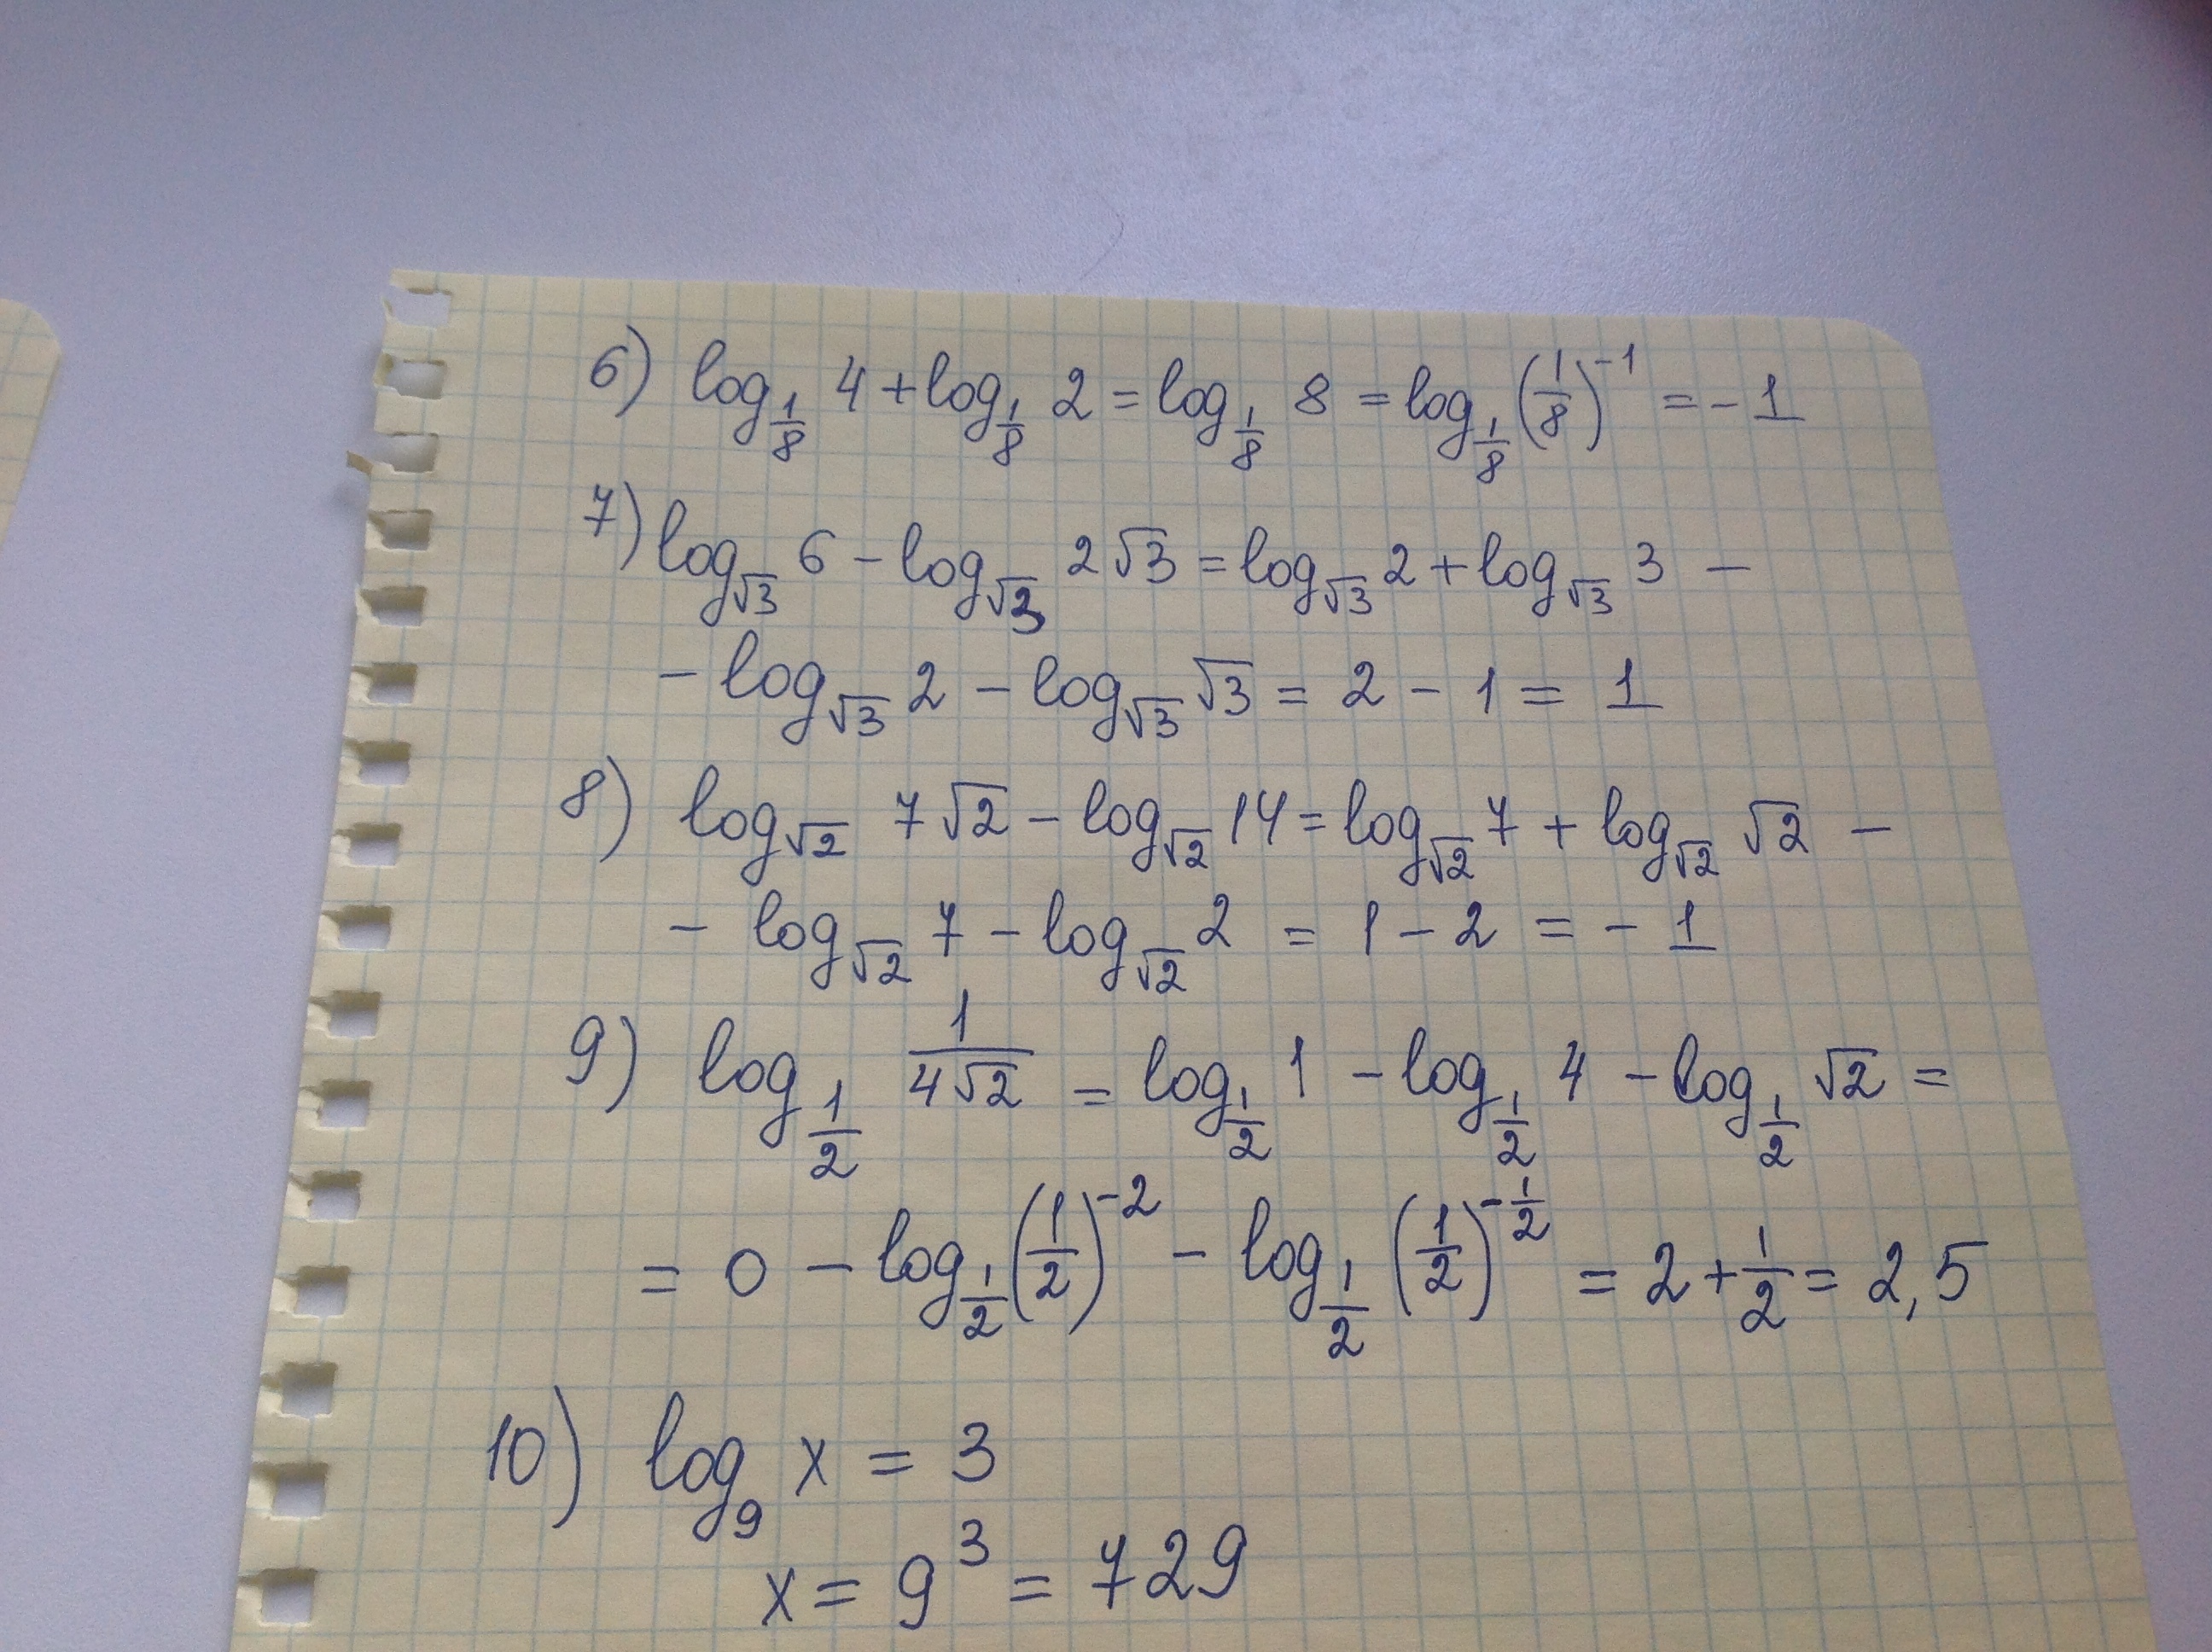 6) log_{1/8} 4 + log_{1/8} 2 = log_{1/8} 8 = log_{1/8} (1/8)^{-1} = -1
7) log_{√3} 6 - log_{√3} 2√3 = log_{√3} 2 + log_{√3} 3 -
- log_{√3} 2 - log_{√3} √3 = 2 - 1 = 1
8) log_{√2} 7√2 - log_{√2} 14 = log_{√2} 7 + log_{√2} √2 -
- log_{√2} 7 - log_{√2} 2 = 1 - 2 = -1
9) log_{1/2} 1/(4√2) = log_{1/2} 1 - log_{1/2} 4 - log_{1/2} √2 =
= 0 - log_{1/2} (1/2)^{-2} - log_{1/2} (1/2)^{-1/2} = 2 + 1/2 = 2,5
10) log_9 x = 3
x = 9^3 = 729